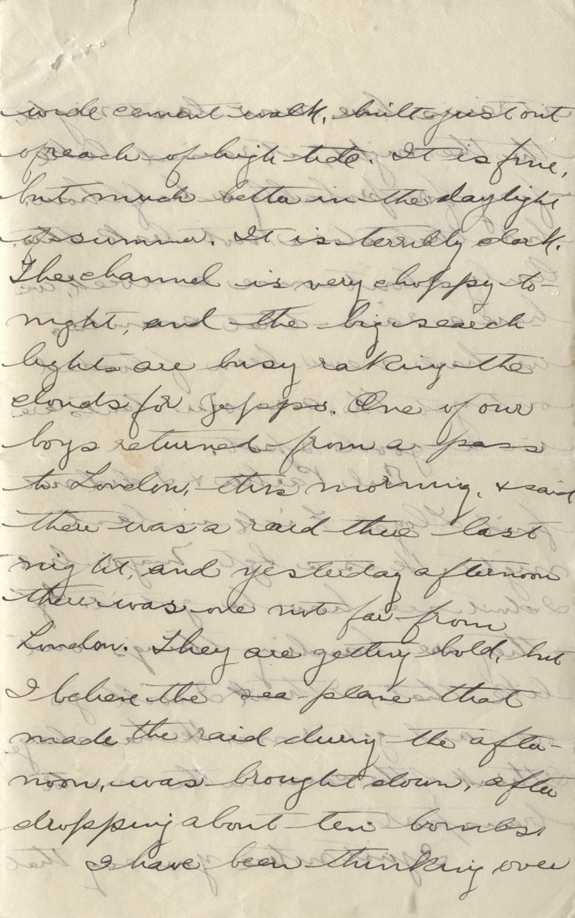 wide cement walk, built just out
of reach of high tide. It is fine,
but much better in the daylight
& summer. It is terribly dark.
The channel is very choppy to-
night, and the big search
lights are busy raking the
clouds for Zepps. One of our
boys returned from a pass
to London, this morning, & said
there was a raid there last
night, and yesterday afternoon
there was one not far from
London. They are getting bold, but
I believe the sea plane that
made the raid during the after-
noon, was brought down, after
dropping about ten bombs.
I have been thinking over